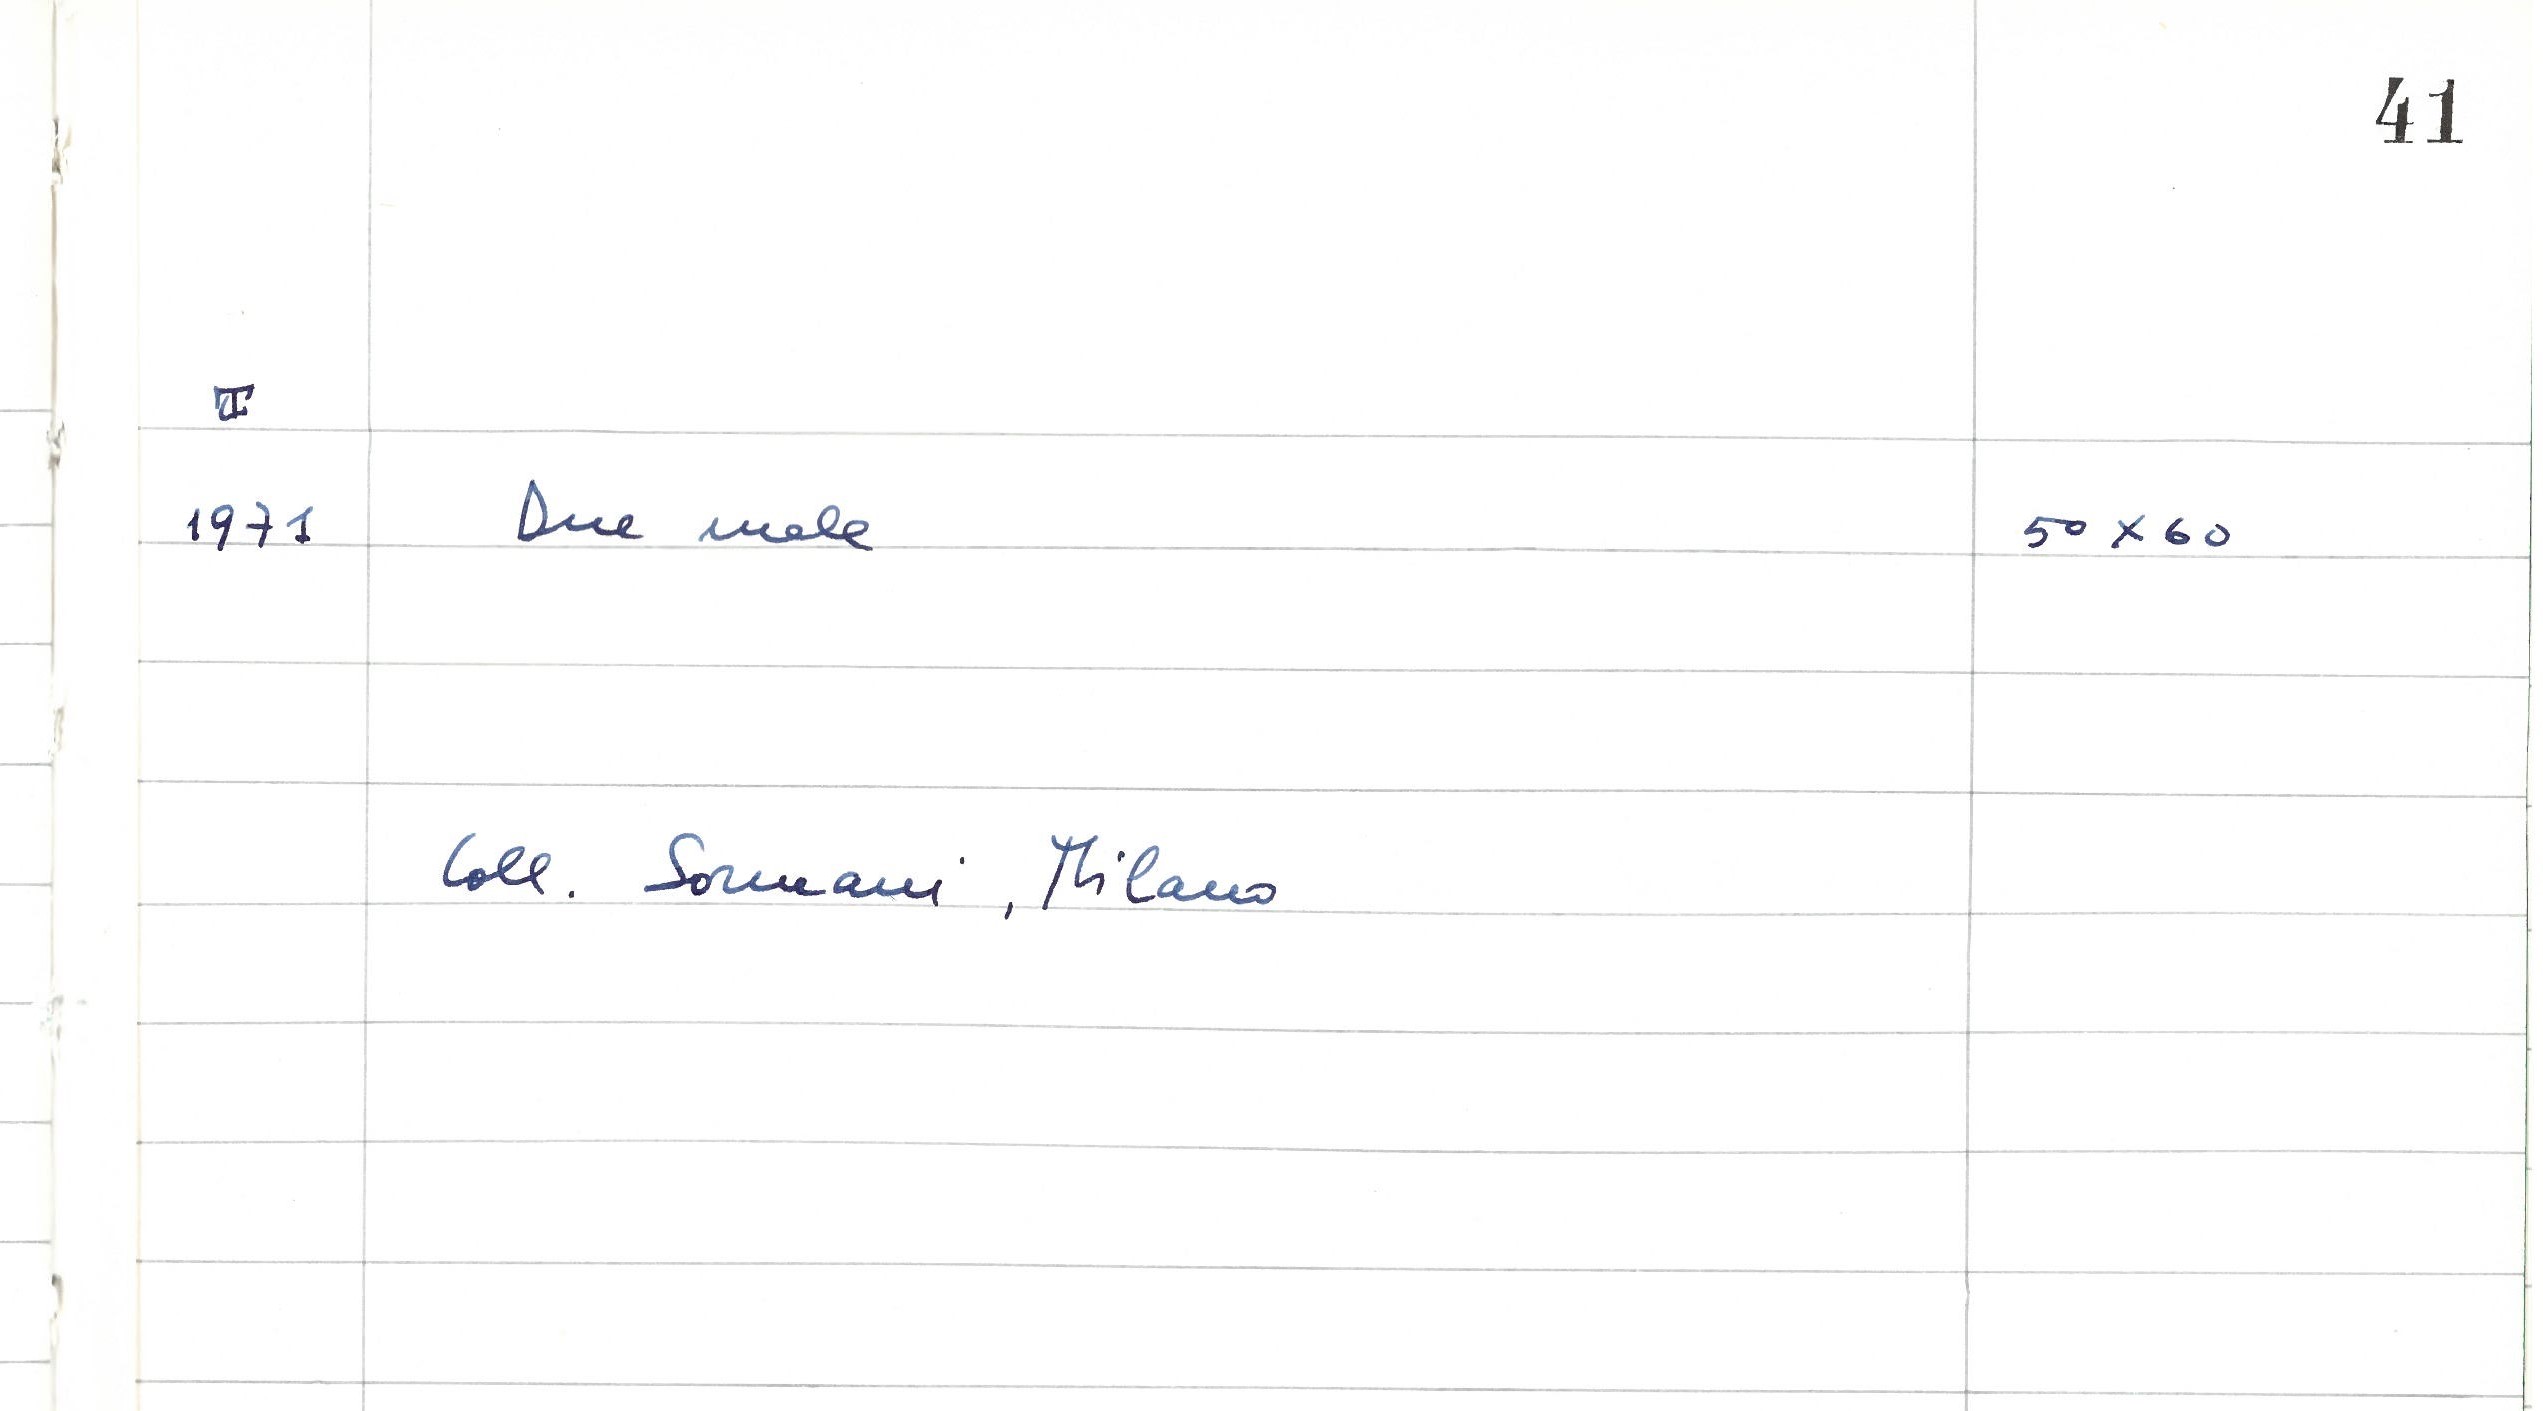 41
T
1971 Due mele 50 x 60
Coll. Sormani, Milano